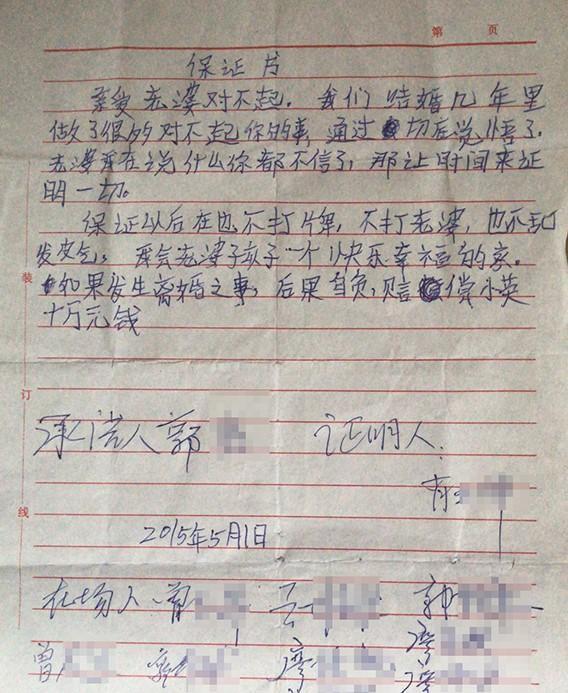 第 页
保证书
亲爱老婆对不起。我们结婚几年里
做了很多对不起你的事 通过 切后 悟了
老婆 在说什么你都不信了,那让时间来证
明一切。
保证以后在也不打牌,不打老婆,也不乱
发 气。 给老婆孩子一个快乐幸福的家。
如果发生离婚之事,后果自负,赔偿小英
十万元钱
装
订
线
承诺人郭
证明人:
2015年5月1日
在场人:曾 郭
曾 廖